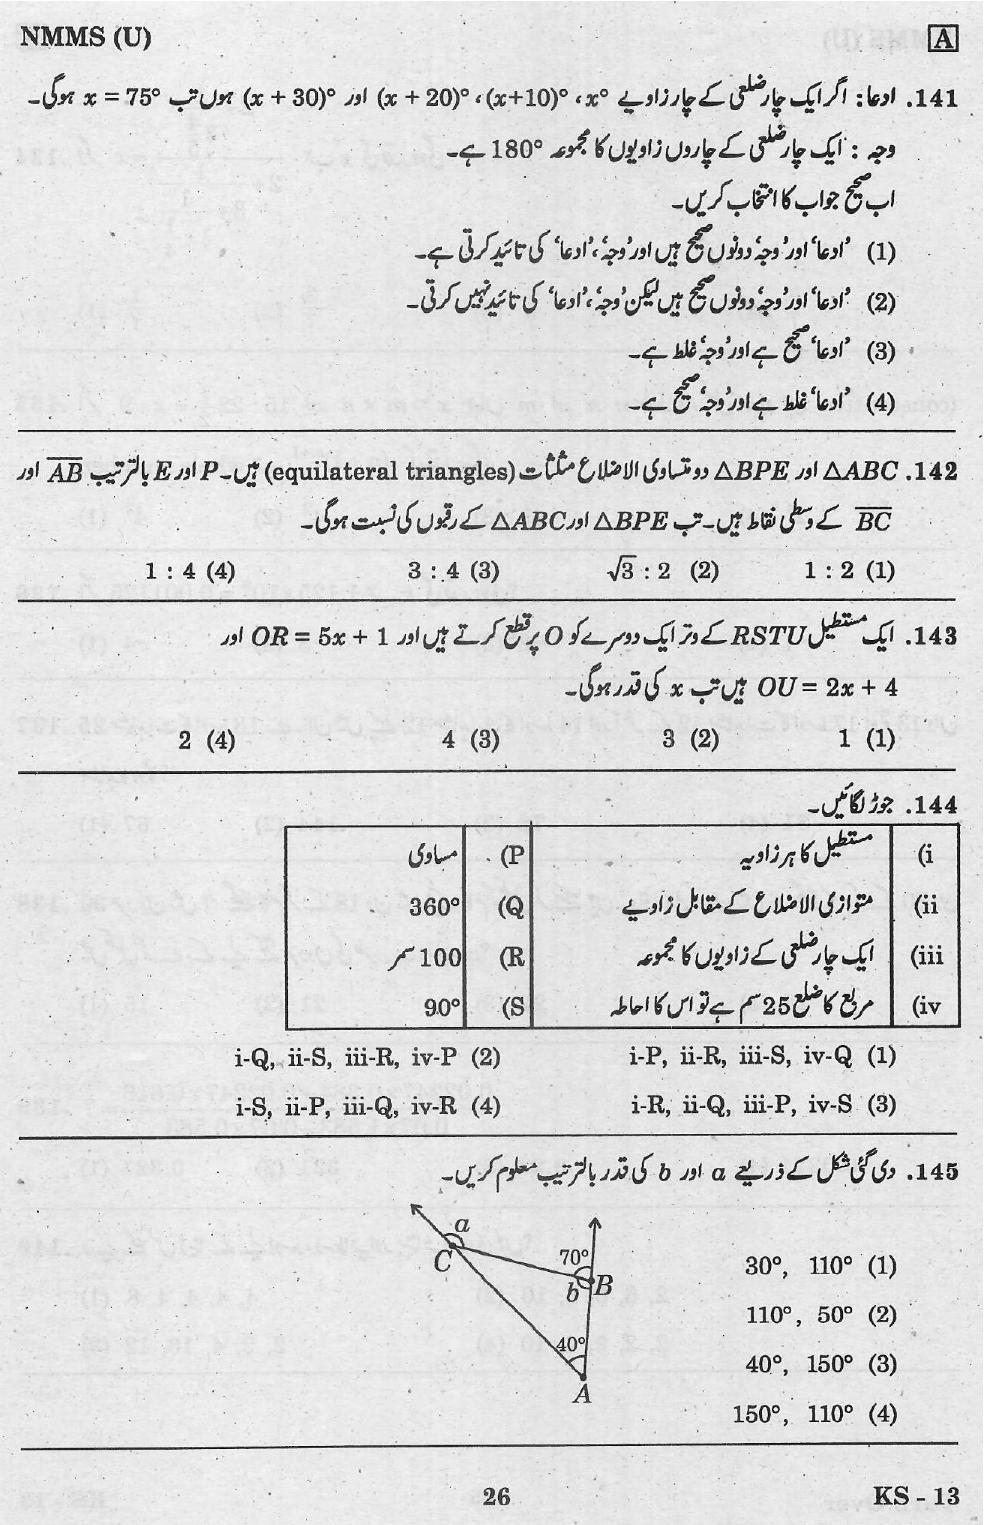 NMMS (U) A
141. ادعا : اگر ایک چار ضلعی کے چار زاویے x°، (x+10)°، (x + 20)° اور (x + 30)° ہوں تب x = 75° ہوگی۔
وجہ : ایک چار ضلعی کے چاروں زاویوں کا مجموعہ 180° ہے۔
اب صحیح جواب کا انتخاب کریں۔
(1) 'ادعا' اور 'وجہ' دونوں صحیح ہیں اور 'وجہ'، 'ادعا' کی تائید کرتی ہے۔
(2) 'ادعا' اور 'وجہ' دونوں صحیح ہیں لیکن 'وجہ'، 'ادعا' کی تائید نہیں کرتی۔
(3) 'ادعا' صحیح ہے اور 'وجہ' غلط ہے۔
(4) 'ادعا' غلط ہے اور 'وجہ' صحیح ہے۔
142. △ABC اور △BPE دو متساوی الاضلاع مثلثات (equilateral triangles) ہیں۔ P اور E بالترتیب A̅B̅ اور
B̅C̅ کے وسطی نقاط ہیں۔ تب △BPE اور △ABC کے رقبوں کی نسبت ہوگی۔
(1) 1 : 2 (2) √3 : 2 (3) 3 : 4 (4) 1 : 4
143. ایک مستطیل RSTU کے وتر ایک دوسرے کو O پر قطع کرتے ہیں اور OR = 5x + 1 اور
OU = 2x + 4 ہیں تب x کی قدر ہوگی۔
(1) 1 (2) 3 (3) 4 (4) 2
144. جوڑ لگائیں۔
(i مستطیل کا ہر زاویہ (P مساوی
(ii متوازی الاضلاع کے مقابل زاویے (Q 360°
(iii ایک چار ضلعی کے زاویوں کا مجموعہ (R 100 سمر
(iv مربع کا ضلع 25 سم ہے تو اس کا احاطہ (S 90°
(1) i-P, ii-R, iii-S, iv-Q (2) i-Q, ii-S, iii-R, iv-P
(3) i-R, ii-Q, iii-P, iv-S (4) i-S, ii-P, iii-Q, iv-R
145. دی گئی شکل کے ذریعے a اور b کی قدر بالترتیب معلوم کریں۔
a
C
70°
b B
40°
A
(1) 30°, 110°
(2) 110°, 50°
(3) 40°, 150°
(4) 150°, 110°
26 KS - 13